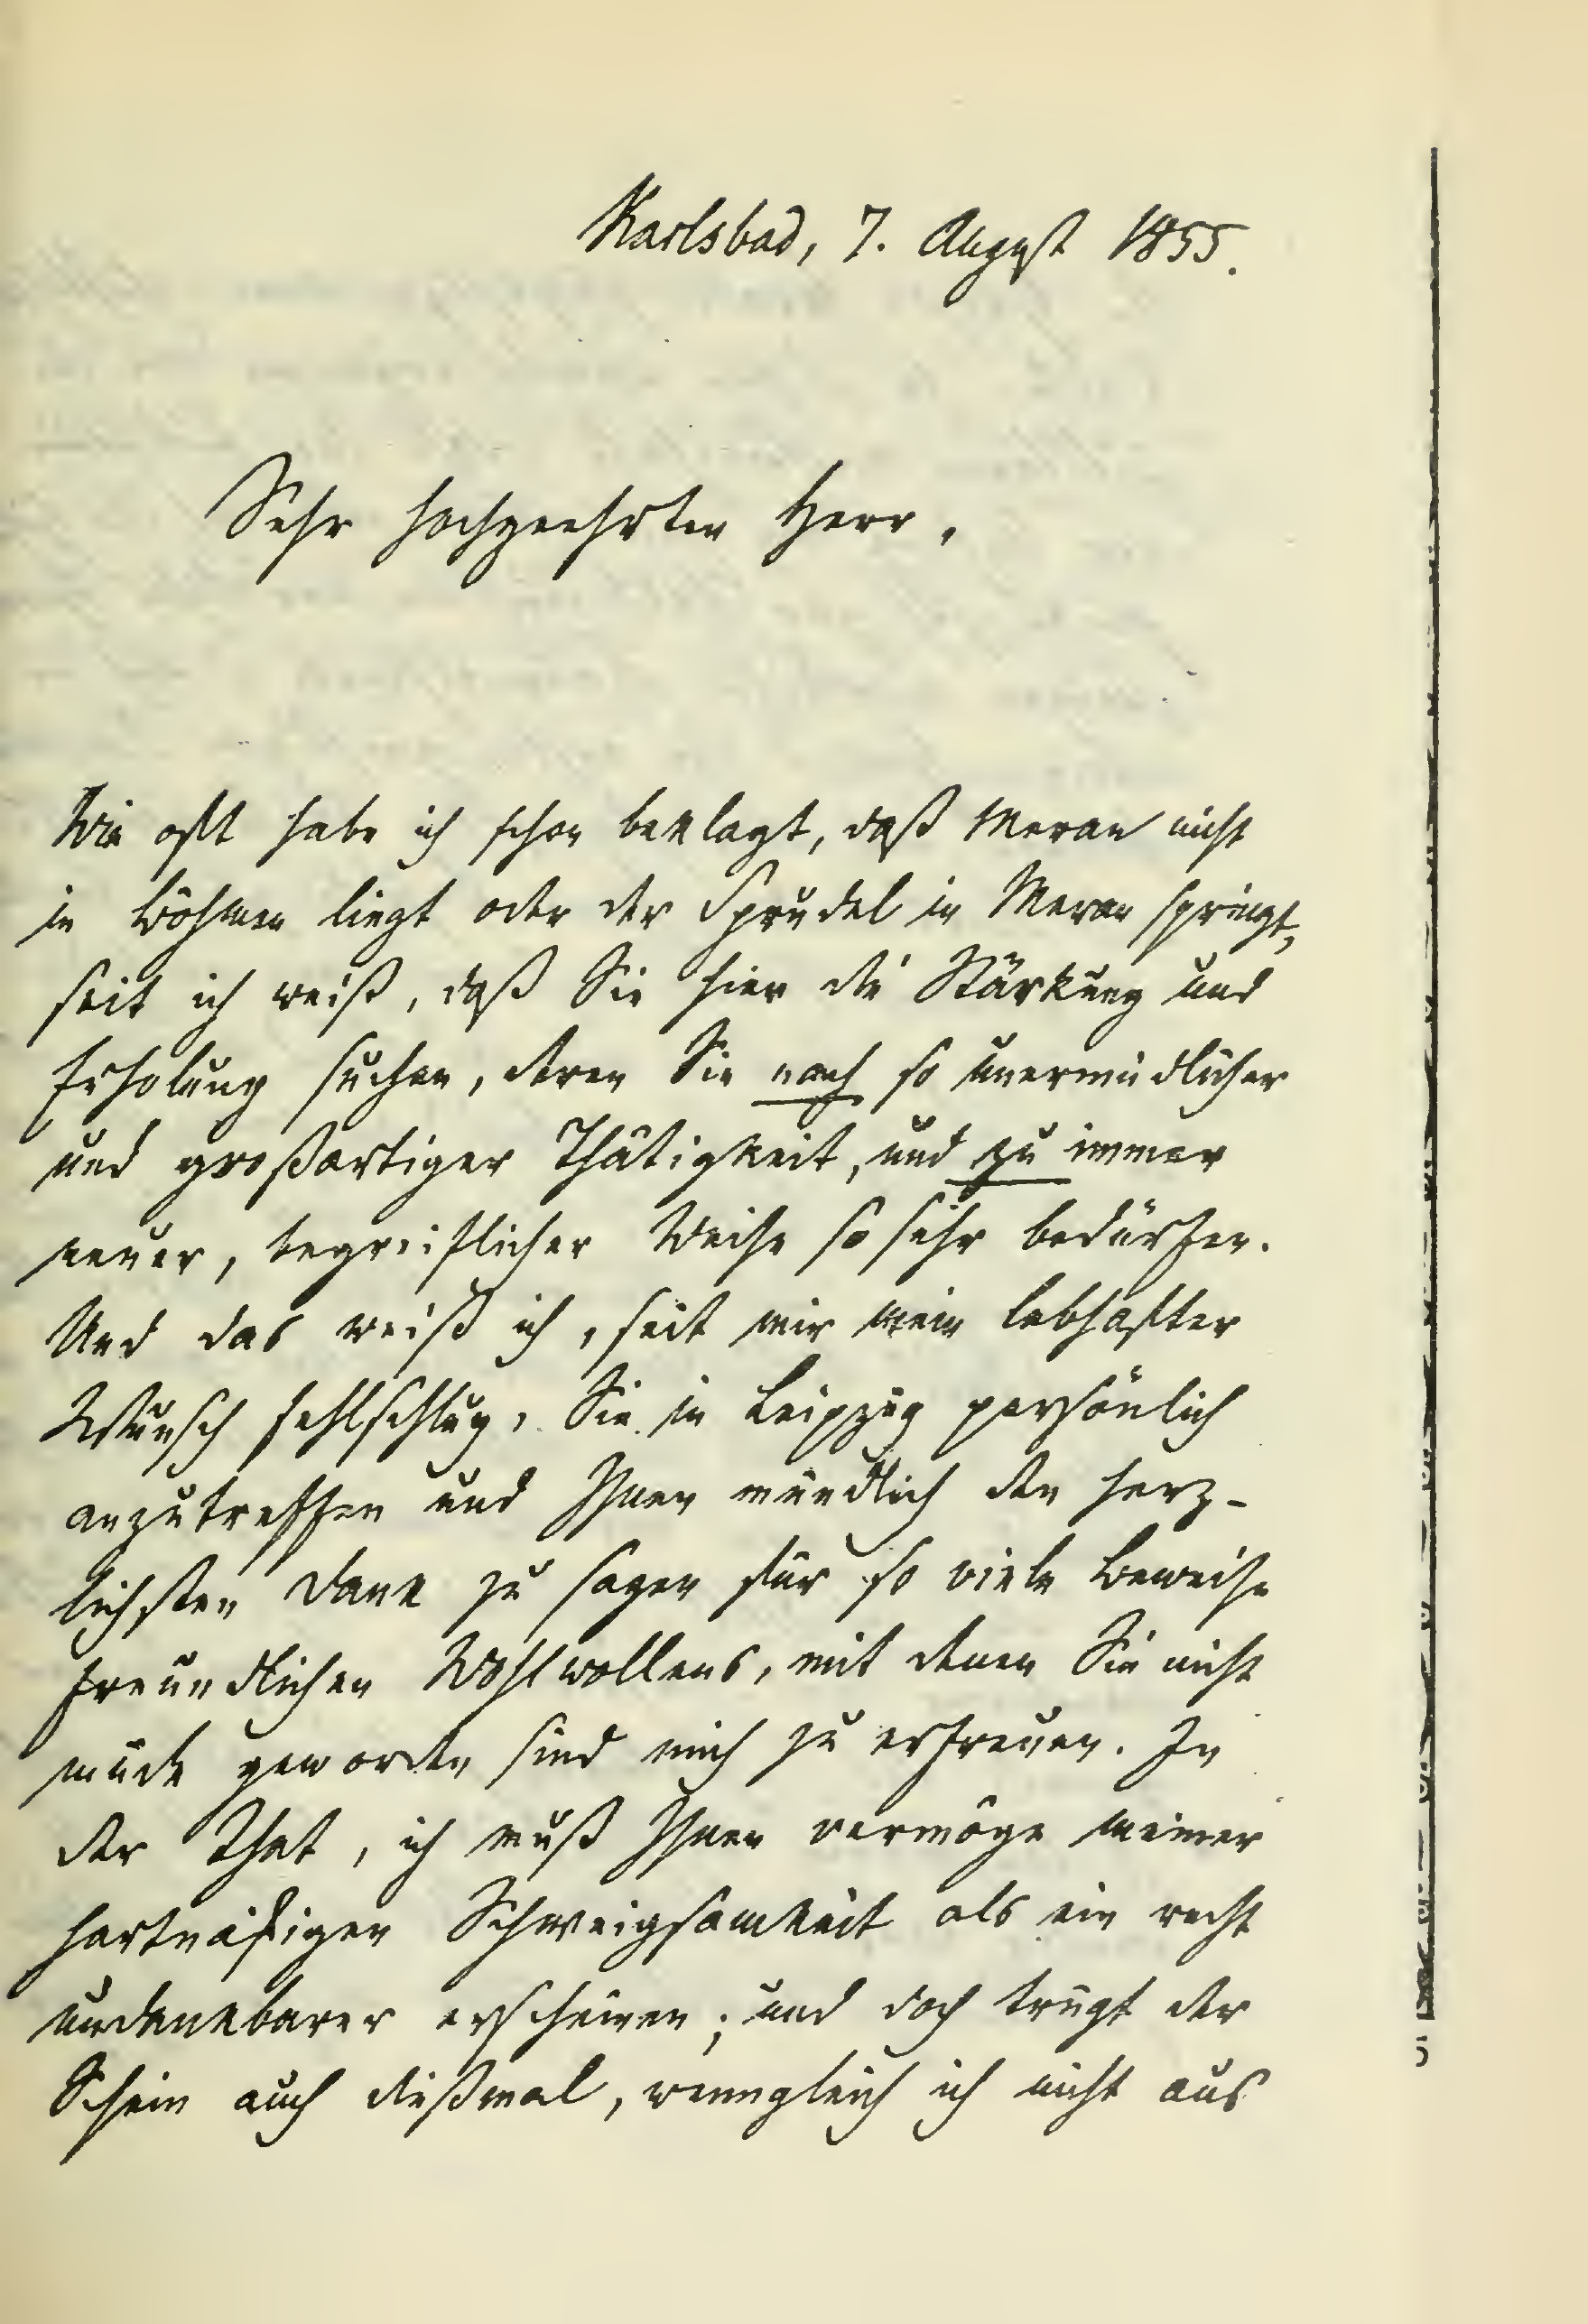 Karlsbad, 7. August 1855.
Sehr hochgeehrter Herr,
Wie oft habe ich schon beklagt, daß Meran nicht
in Böhmen liegt oder der Sprudel in Meran springt,
seit ich weiß, daß Sie hier die Stärkung und
Erholung suchen, deren Sie nach so unermüdlicher
und großartiger Thätigkeit, und zu immer
neuer, begreiflicher Weise so sehr bedürfen.
Und das weiß ich, seit mir mein lebhafter
Wunsch fehlschlug, Sie in Leipzig persönlich
anzutreffen und Ihnen mündlich den herz-
lichsten Dank zu sagen für so viele Beweise
freundlichen Wohlwollens, mit denen Sie nicht
müde geworden sind mich zu erfreuen. In
der That, ich muß Ihnen vermöge meiner
hartnäckigen Schweigsamkeit als ein recht
undankbarer erscheinen; und doch trügt der
Schein auch dießmal, wenngleich ich nicht aus